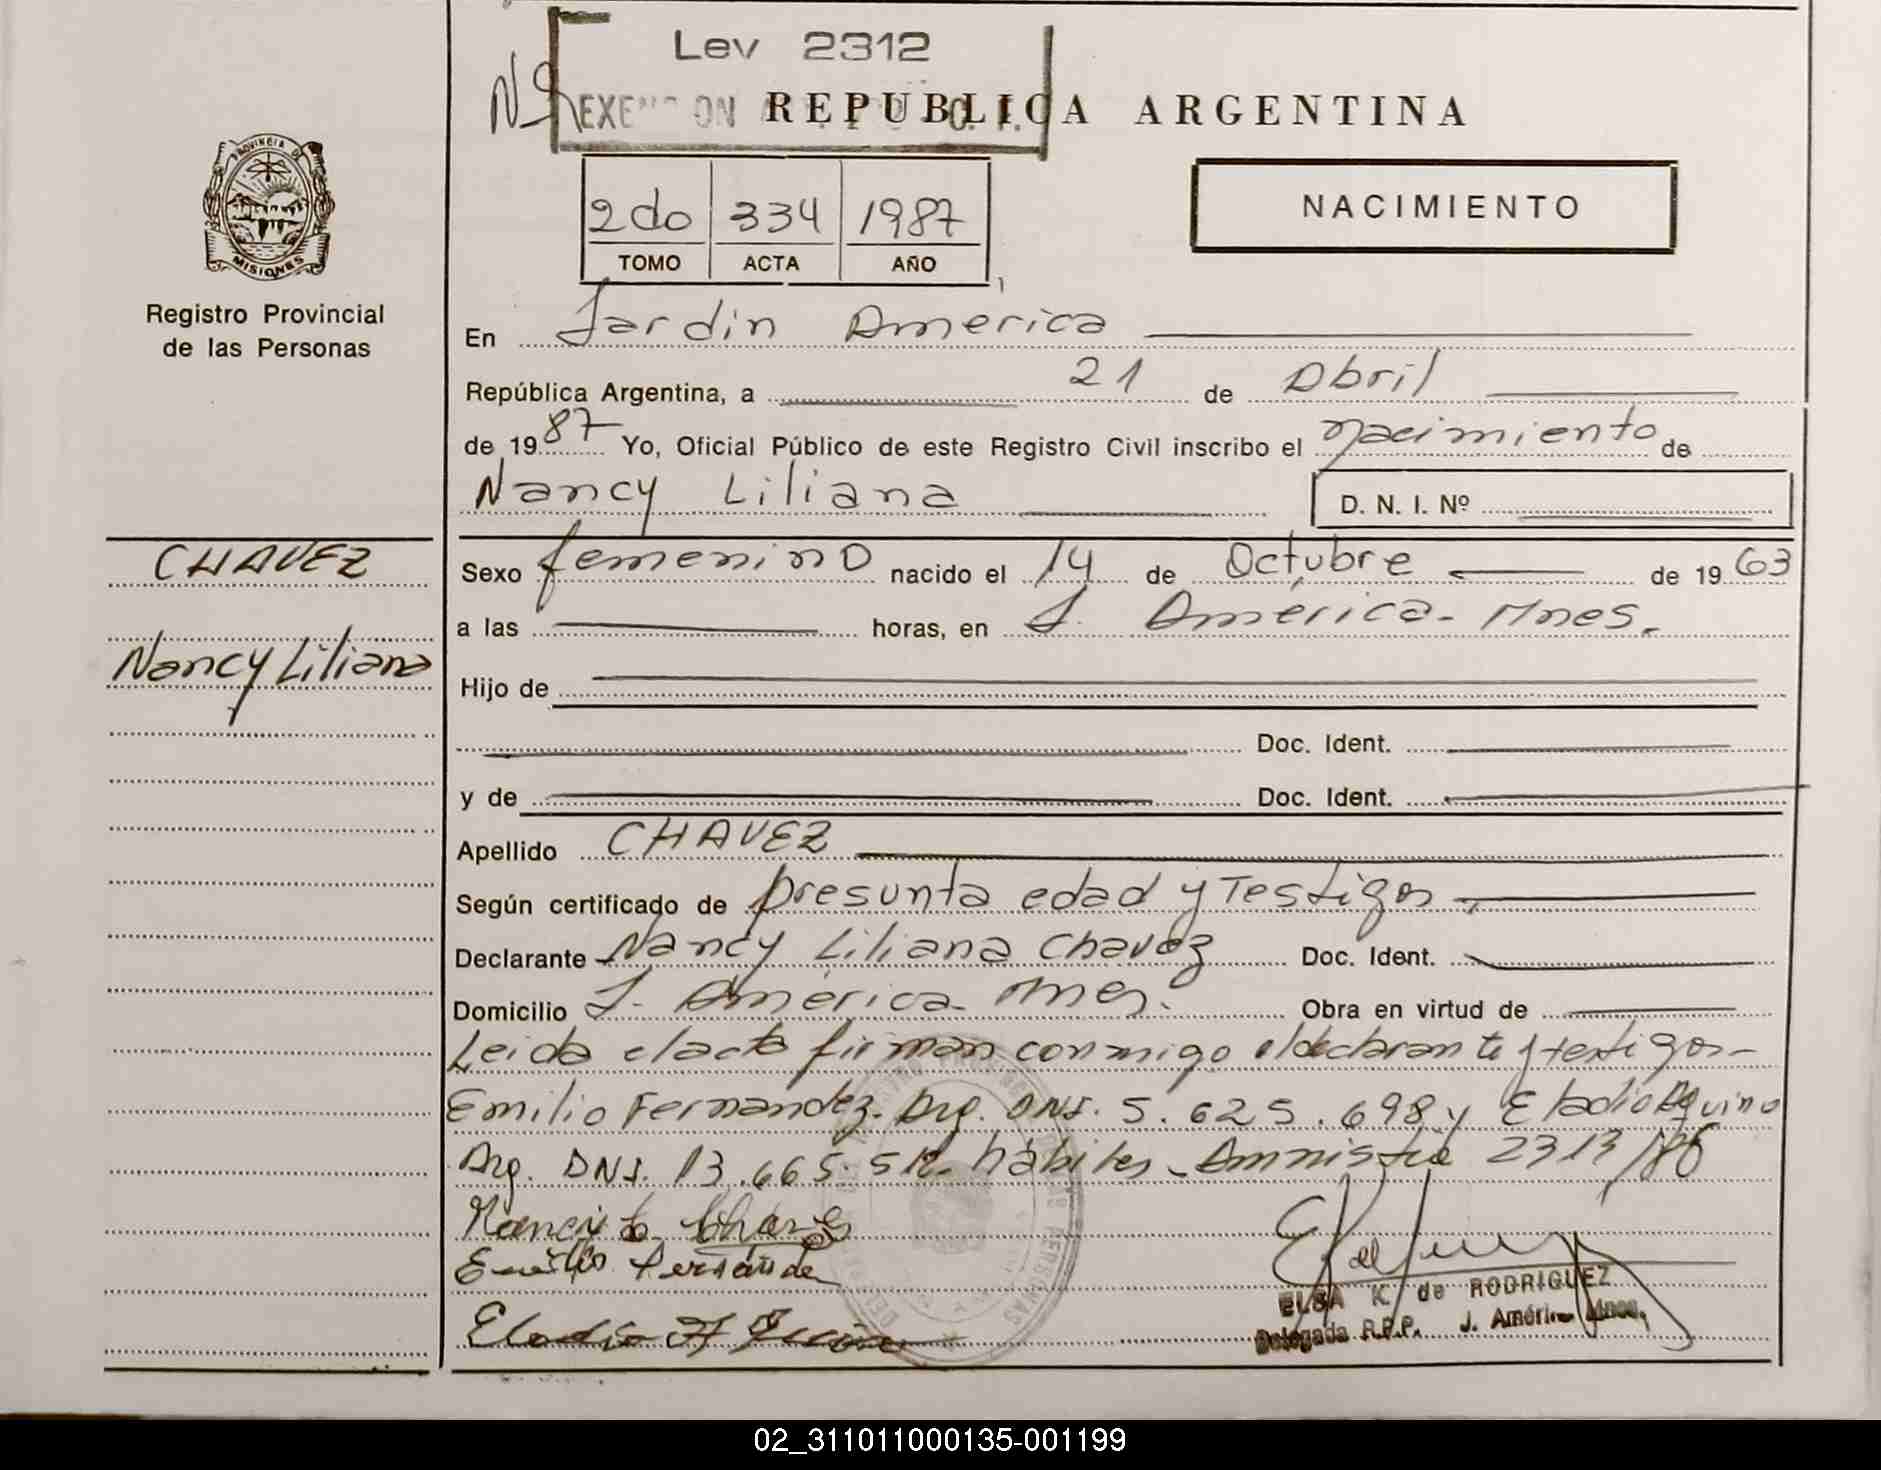 Ley 2312
REPUBLICA ARGENTINA
PROVINCIA DE
MISIONES
Registro Provincial
de las Personas
2do 334 1987
TOMO ACTA AÑO
NACIMIENTO
En Jardin America
República Argentina, a 21 de Abril
de 1987 Yo, Oficial Público de este Registro Civil inscribo el nacimiento de
Nancy Liliana D. N. I. Nº
CHAVEZ
Nancy Liliana
Sexo femenino nacido el 14 de Octubre de 1963
a las horas, en J. América - Mnes.
Hijo de
Doc. Ident.
y de Doc. Ident.
Apellido CHAVEZ
Según certificado de presunta edad y Testigos
Declarante Nancy Liliana Chavez Doc. Ident.
Domicilio J. América - Mnes. Obra en virtud de
Leida el acta firman conmigo el declarante y testigos -
Emilio Fernandez. Arg. DNI. 5.625.698 y Eladio Aquino
Arg. DNI. 13.665. hábiles - Amnistia 2313/86
Emilio Fernande
ELSA K. de RODRIGUEZ
Delegada R.P.P. J. América Mnes.
02_311011000135-001199